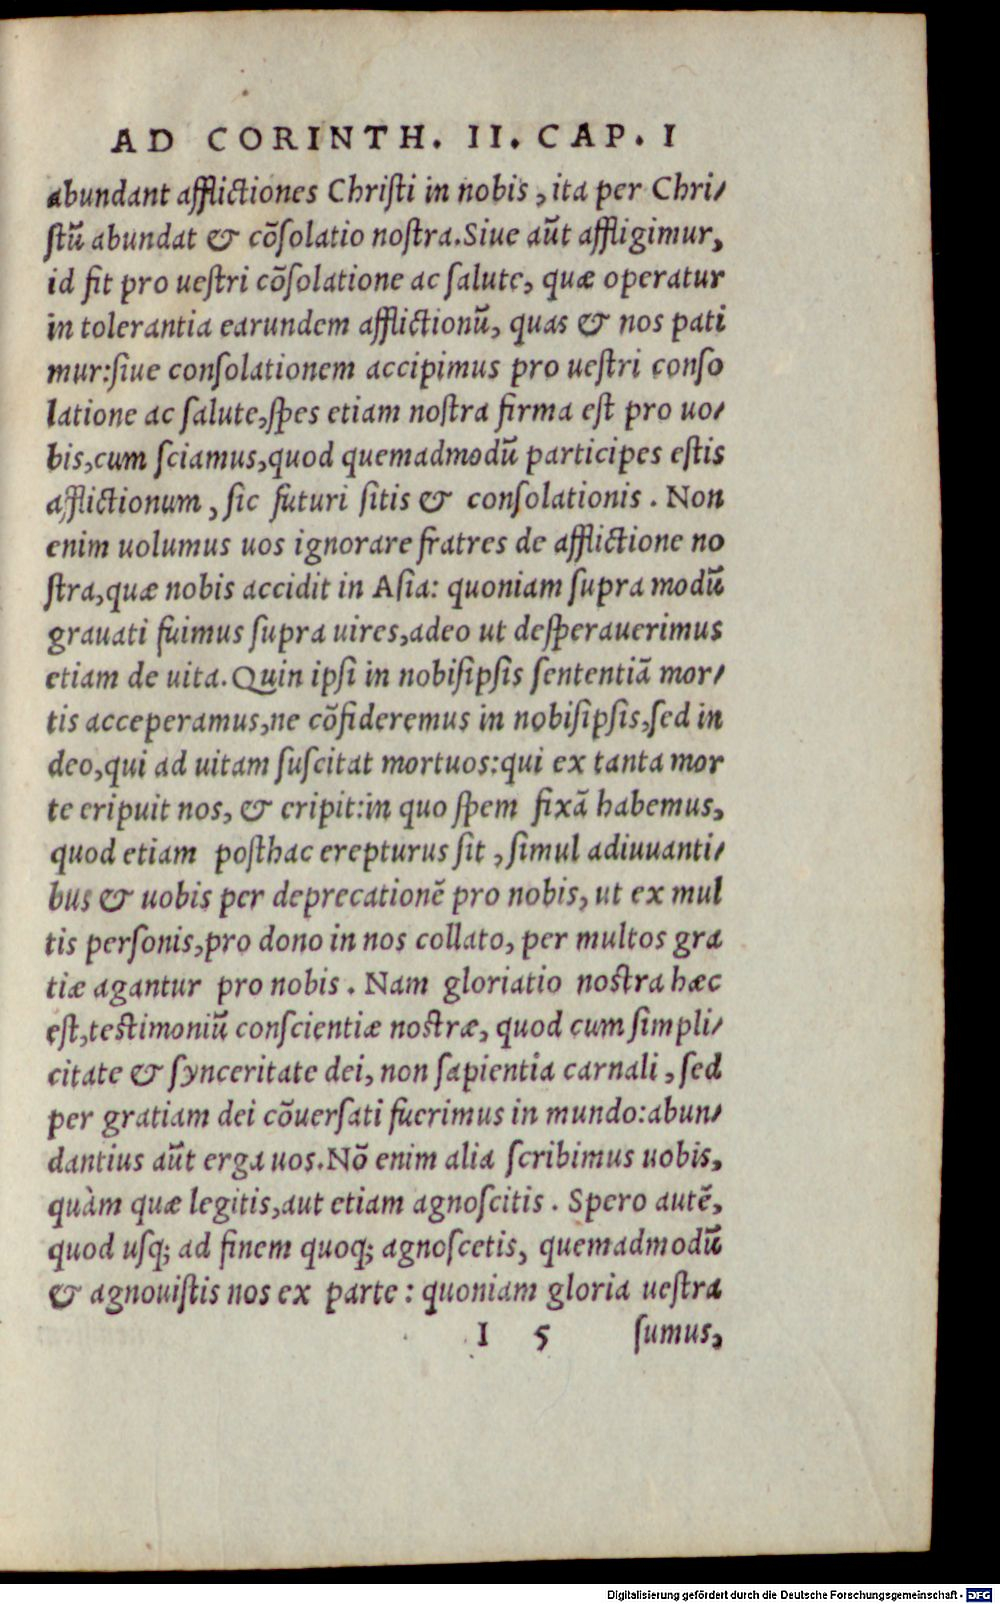 AD CORINTH. II. CAP. I
abundant afflictiones Chriſti in nobis, ita per Chri/
ſtũ abundat & cõſolatio noſtra. Siue aũt affligimur,
id fit pro ueſtri cõſolatione ac ſalute, quæ operatur
in tolerantia earundem afflictionũ, quas & nos pati
mur: ſiue conſolationem accipimus pro ueſtri conſo
latione ac ſalute, ſpes etiam noſtra firma eſt pro uo/
bis, cum ſciamus, quod quemadmodũ participes eſtis
afflictionum, ſic futuri ſitis & conſolationis. Non
enim uolumus uos ignorare fratres de afflictione no
ſtra, quæ nobis accidit in Aſia: quoniam ſupra modũ
grauati fuimus ſupra uires, adeo ut deſperauerimus
etiam de uita. Quin ipſi in nobiſipſis ſententiã mor/
tis acceperamus, ne cõfideremus in nobiſipſis, ſed in
deo, qui ad uitam ſuſcitat mortuos: qui ex tanta mor
te eripuit nos, & eripit: in quo ſpem fixã habemus,
quod etiam poſthac erepturus ſit, ſimul adiuuanti/
bus & uobis per deprecationẽ pro nobis, ut ex mul
tis perſonis, pro dono in nos collato, per multos gra
tiæ agantur pro nobis. Nam gloriatio noſtra hæc
eſt, teſtimoniũ conſcientiæ noſtræ, quod cum ſimpli/
citate & ſynceritate dei, non ſapientia carnali, ſed
per gratiam dei cõuerſati fuerimus in mundo: abun/
dantius aũt erga uos. Nõ enim alia ſcribimus uobis,
quàm quæ legitis, aut etiam agnoſcitis. Spero autẽ,
quod uſq; ad finem quoq; agnoſcetis, quemadmodũ
& agnouiſtis nos ex parte: quoniam gloria ueſtra
I 5 ſumus,
Digitalisierung gefördert durch die Deutsche Forschungsgemeinschaft - DFG